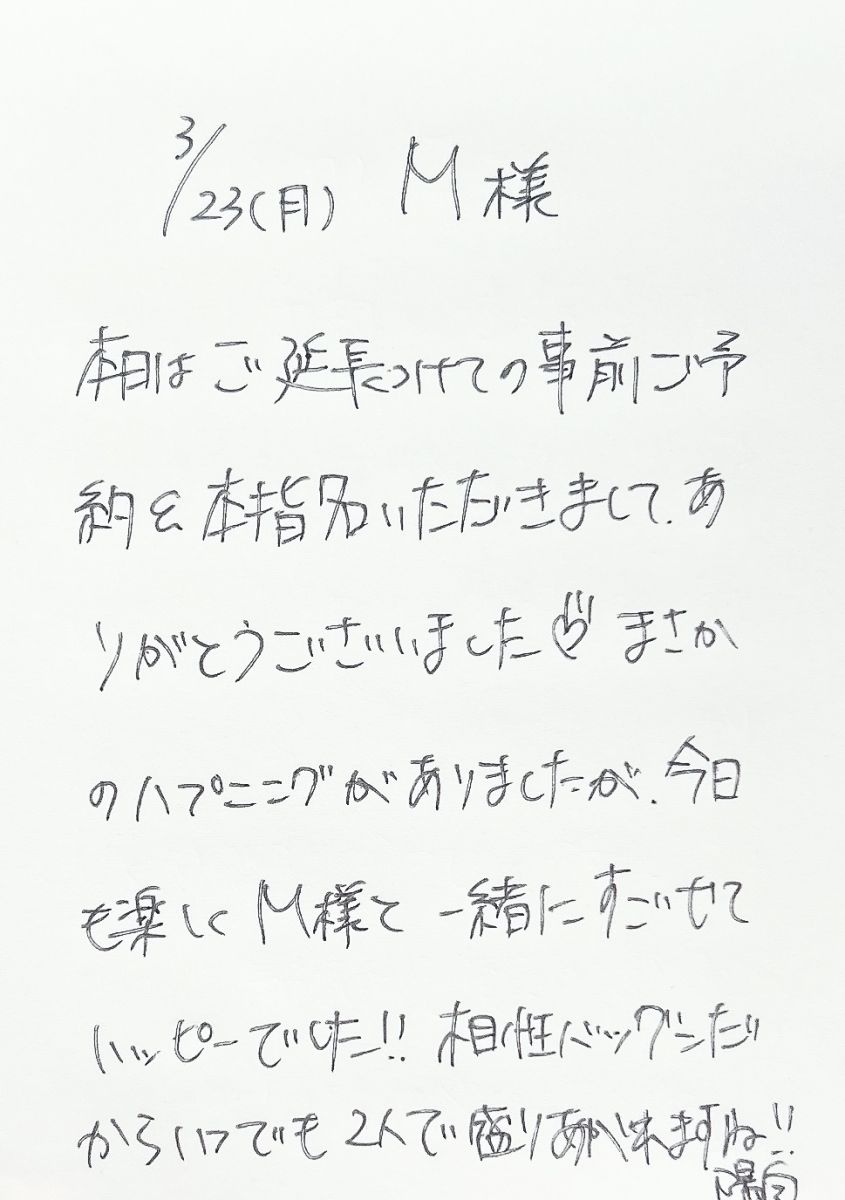 3/23(月) M様
本日はご延長つけての事前ご予
約&本指名いただきまして、あ
りがとうございました まさか
のハプニングがありましたが、今日
も楽しくM様と一緒にすごせて
ハッピーでした!! 相性バツグンだ
からいつでも2人で盛りあがれますね!!